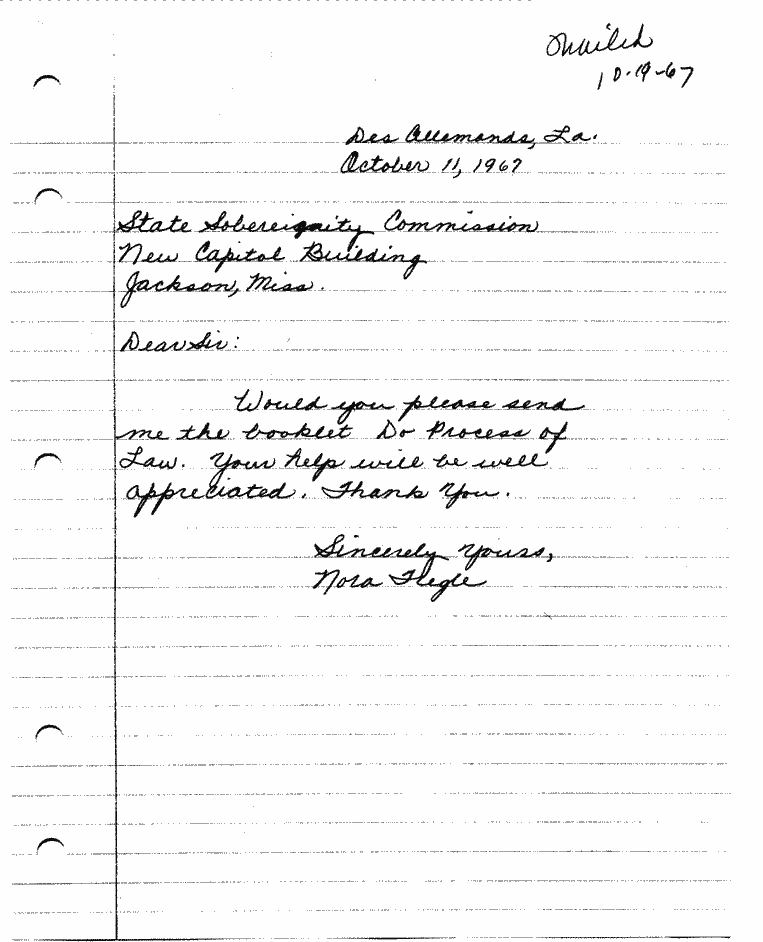 Mailed
10-19-67
Des Allemands, La.
October 11, 1967
State Sobereignity Commission
New Capitol Building
Jackson, Miss.
Dear Sir:
Would you please send
me the booklet Do Process of
Law. Your help will be well
appreciated. Thank You.
Sincerely Yours,
Nora Flegle